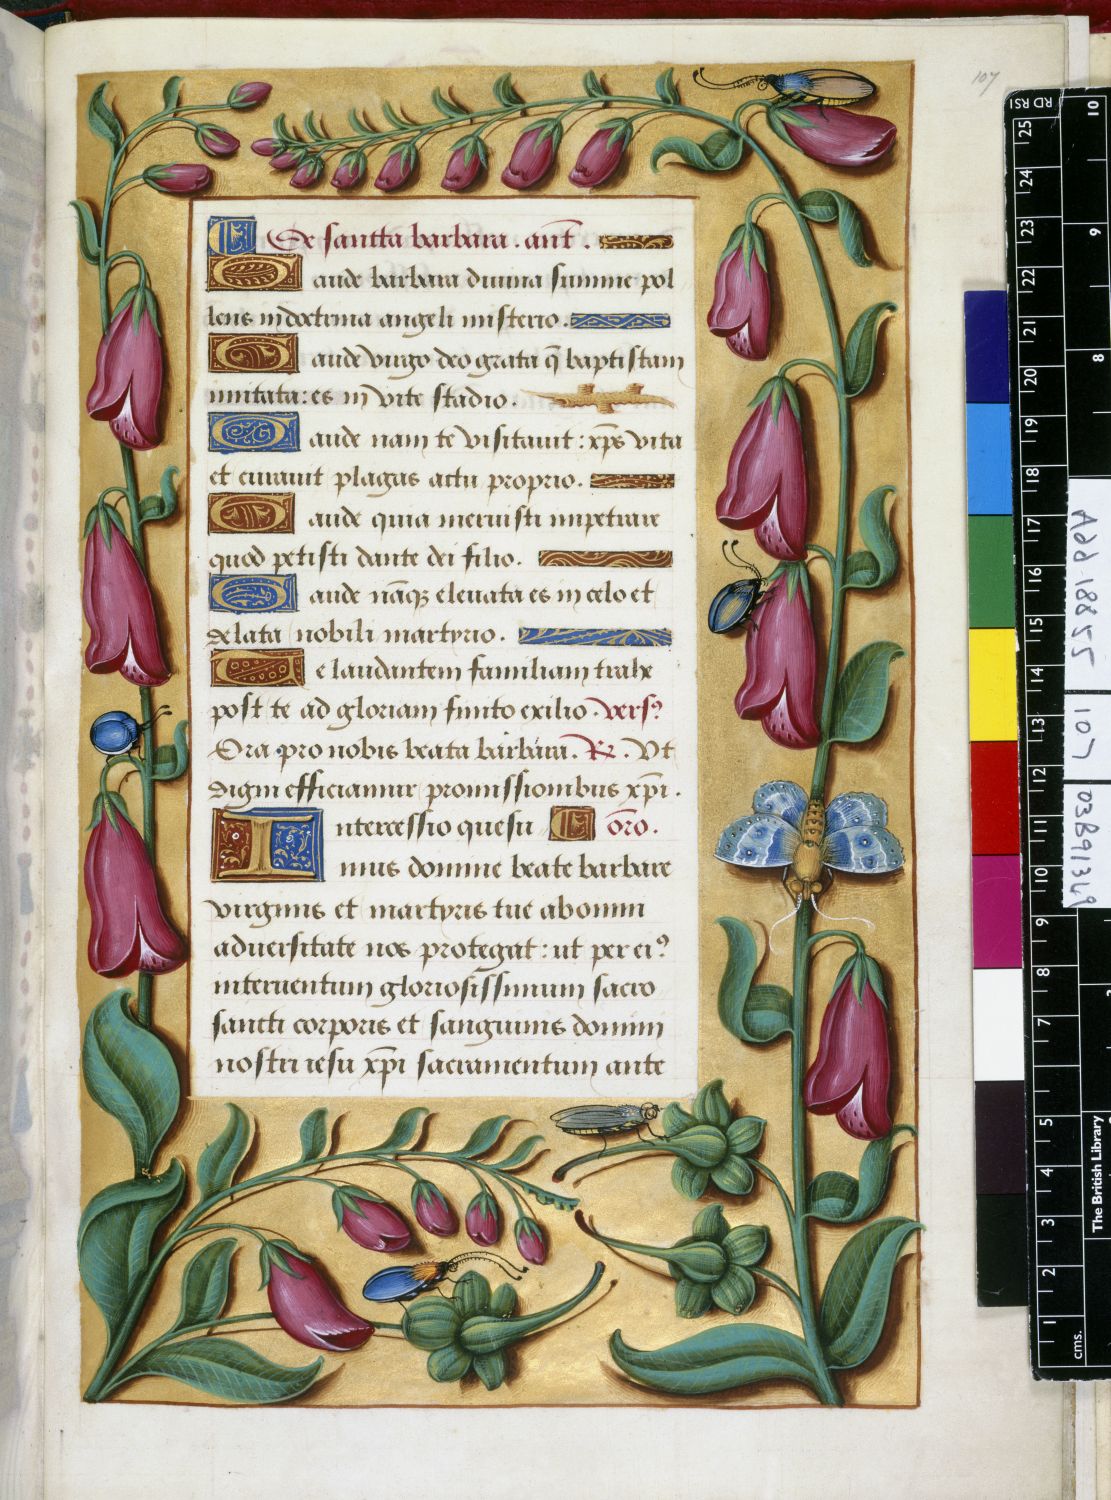 107
De sancta barbara. ant.
Gaude barbara divina summe pol
lens in doctrina angeli misterio.
Gaude virgo deo grata q̄ baptistam
imitata: es in vite stadio.
Gaude nam te visitavit: xp̄s vita
et curavit plagas actu proprio.
Gaude quia meruisti impetrare
quod petisti dante dei filio.
Gaude nāq; elevata es in celo et
delata nobili martyrio.
Te laudantem familiam trahe
post te ad gloriam finito exilio. vers?
Ora pro nobis beata barbara. R. Vt
digni efficiamur promissionibus xp̄i.
Intercessio quesu or̄o.
mus domine beate barbare
virginis et martyris tue ab omni
adversitate nos protegat: ut per ei?
interventum gloriosissimum sacro
sancti corporis et sanguinis domini
nostri iesu xp̄i sacramentum ante
Add. 18855
107
03B91349
The British Library
cms. 1 2 3 4 5 6 7 8 9 10 11 12 13 14 15 16 17 18 19 20 21 22 23 24 25
8 9 10